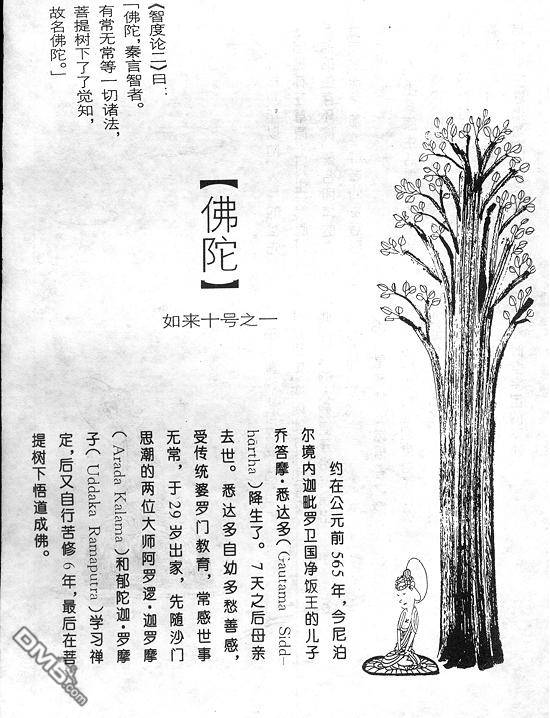 《智度论二》曰：
「佛陀，秦言智者。
有常无常等一切诸法，
菩提树下了了觉知，
故名佛陀。」
【佛陀】
如来十号之一
约在公元前565年，今尼泊
尔境内迦毗罗卫国净饭王的儿子
乔答摩·悉达多(Gautama Sidd-
hārtha)降生了。7天之后母亲
去世。悉达多自幼多愁善感，
受传统婆罗门教育，常感世事
无常，于29岁出家，先随沙门
思潮的两位大师阿罗逻·迦罗摩
(Arada Kalama)和郁陀迦·罗摩
子(Uddaka Ramaputra)学习禅
定，后又自行苦修6年，最后在菩
提树下悟道成佛。
DM5.com